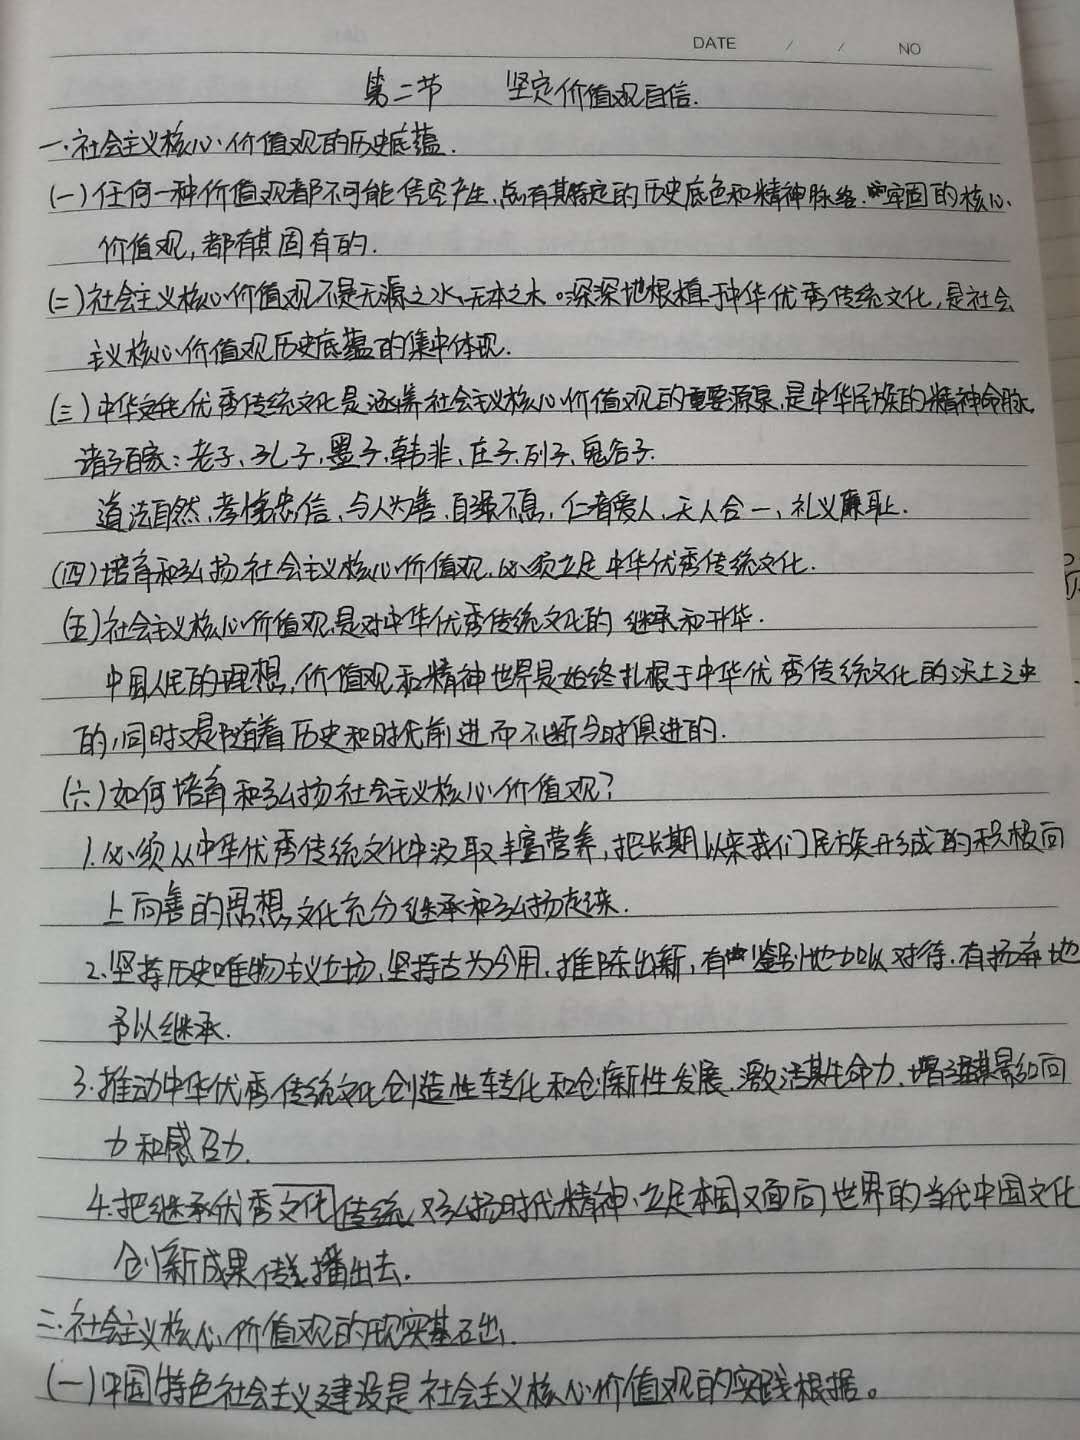 DATE / / NO
第二节 坚定价值观自信.
一.社会主义核心价值观的历史底蕴.
(一)任何一种价值观都不可能凭空产生,总有其特定的历史底色和精神脉络.牢固的核心
价值观,都有其固有的.
(二)社会主义核心价值观不是无源之水、无本之木。深深地根植于中华优秀传统文化,是社会
主义核心价值观历史底蕴的集中体现.
(三)中华文化优秀传统文化是涵养社会主义核心价值观的重要源泉,是中华民族的精神命脉.
诸子百家:老子、孔子、墨子、韩非、庄子、列子、鬼谷子.
道法自然,孝悌忠信,与人为善,自强不息,仁者爱人,天人合一,礼义廉耻.
(四)培育和弘扬社会主义核心价值观,必须立足中华优秀传统文化.
(五)社会主义核心价值观是对中华优秀传统文化的继承和升华.
中国人民的理想,价值观和精神世界是始终扎根于中华优秀传统文化的沃土之中
的,同时又是随着历史和时代前进而不断与时俱进的.
(六)如何培育和弘扬社会主义核心价值观?
1.必须从中华优秀传统文化中汲取丰富营养,把长期以来我们民族形成的积极向
上向善的思想文化充分继承和弘扬起来.
2.坚持历史唯物主义立场,坚持古为今用,推陈出新,有鉴别地加以对待,有扬弃地
予以继承.
3.推动中华优秀传统文化创造性转化和创新性发展,激活其生命力,增强其影响
力和感召力.
4.把继承优秀文化传统又弘扬时代精神、立足本国又面向世界的当代中国文化
创新成果传播出去.
二.社会主义核心价值观的现实基础.
(一)中国特色社会主义建设是社会主义核心价值观的实践根据。